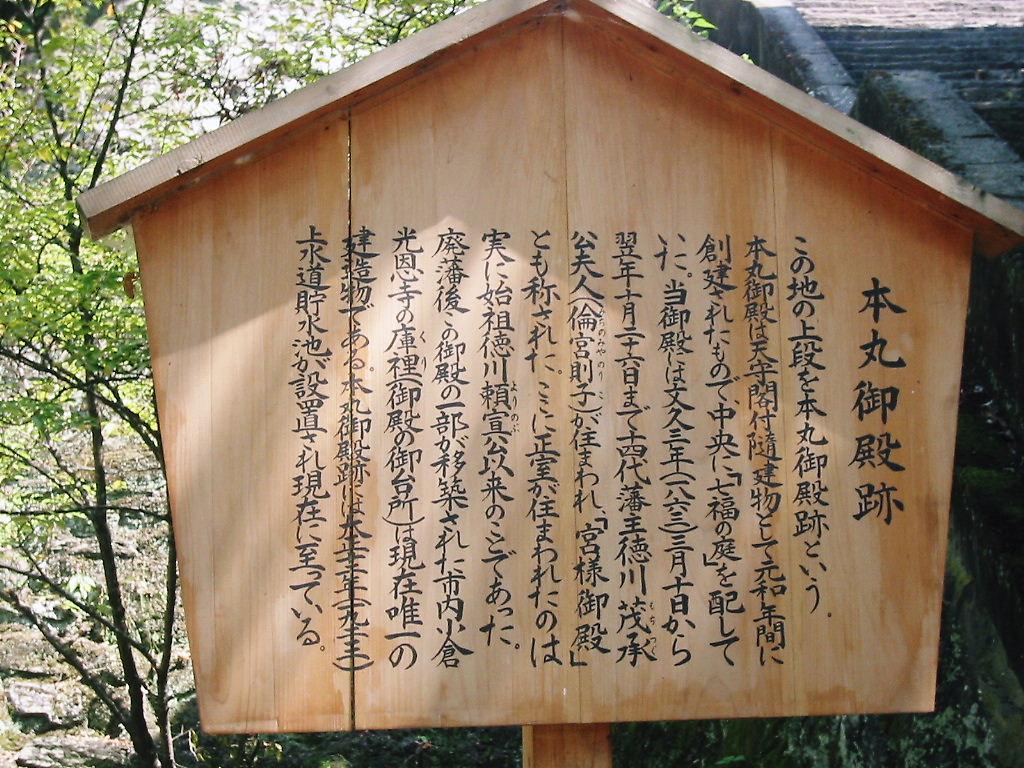 本丸御殿跡
この地の上段を本丸御殿跡という。
本丸御殿は天守閣付随建物として元和年間に
創建されたもので、中央に「七福の庭」を配して
いた。当御殿には文久三年(一八六三)三月十日から
翌年十月二十六日まで十四代藩主徳川茂承
公夫人(倫宮則子)が住まわれ、「宮様御殿」
とも称された。ここに正室が住まわれたのは
実に始祖徳川頼宣公以来のことであった。
廃藩後この御殿の一部が移築された市内小倉
光恩寺の庫裡(御殿の御台所)は現在唯一の
建造物である。本丸御殿跡には大正十二年(一九二三)
上水道貯水池が設置され現在に至っている。